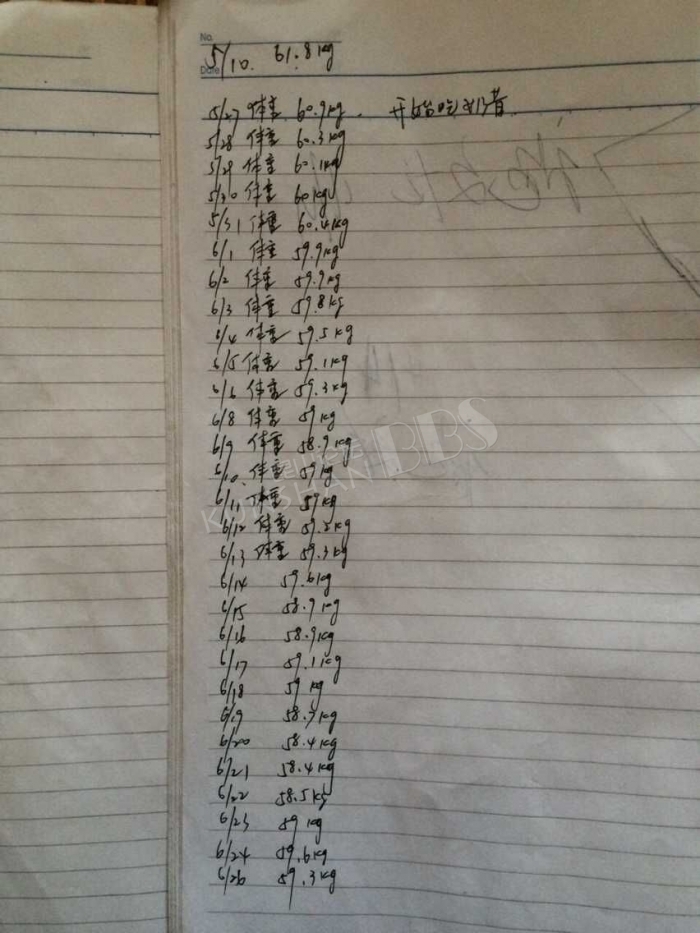 No.
Date
5/10. 61.8kg
5/27 体重 60.9kg. 开始吃
5/28 体重 60.3kg
5/29 体重 60.1kg
5/30 体重 60kg
5/31 体重 60.4kg
6/1 体重 59.9kg
6/2 体重 59.9kg
6/3 体重 59.8kg
6/4 体重 59.5kg
6/5 体重 59.1kg
6/6 体重 59.3kg
6/8 体重 59kg
6/9 体重 58.9kg
6/10. 体重 59kg
6/11 体重 59kg
6/12 体重 59.2kg
6/13 体重 59.3kg
6/14 59.6kg
6/15 58.9kg
6/16 58.9kg
6/17 59.1kg
6/18 59kg
6/19 58.7kg
6/20 58.4kg
6/21 58.4kg
6/22 58.5kg
6/23 59kg
6/24 59.6kg
6/26 59.3kg
KUNSHAN BBS